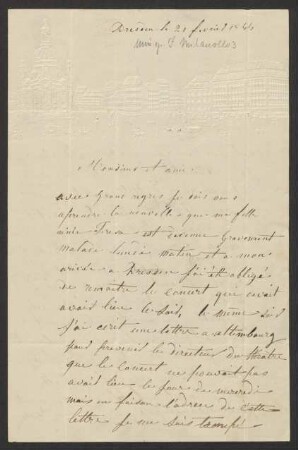 Dresden le 21 fevrier 1844
Monsieur et ami
avec grand regret je dois vous
aprendre la nouvelle que ma fille
ainée Tresa est devenue gravement
malade lundi matin et a mon
arivée a Dresden j'ai été obligé
de remettre le concert qui devait
avoir lieu le soir, le meme soir
j'ai ecrit une lettre a altembourg
pour prevenir le directeur du theatre
que le concert ne pouvant pas
avoir lieu le jour de mercredi
mais en faisan l'adresse de cette
lettre je me suis trompé